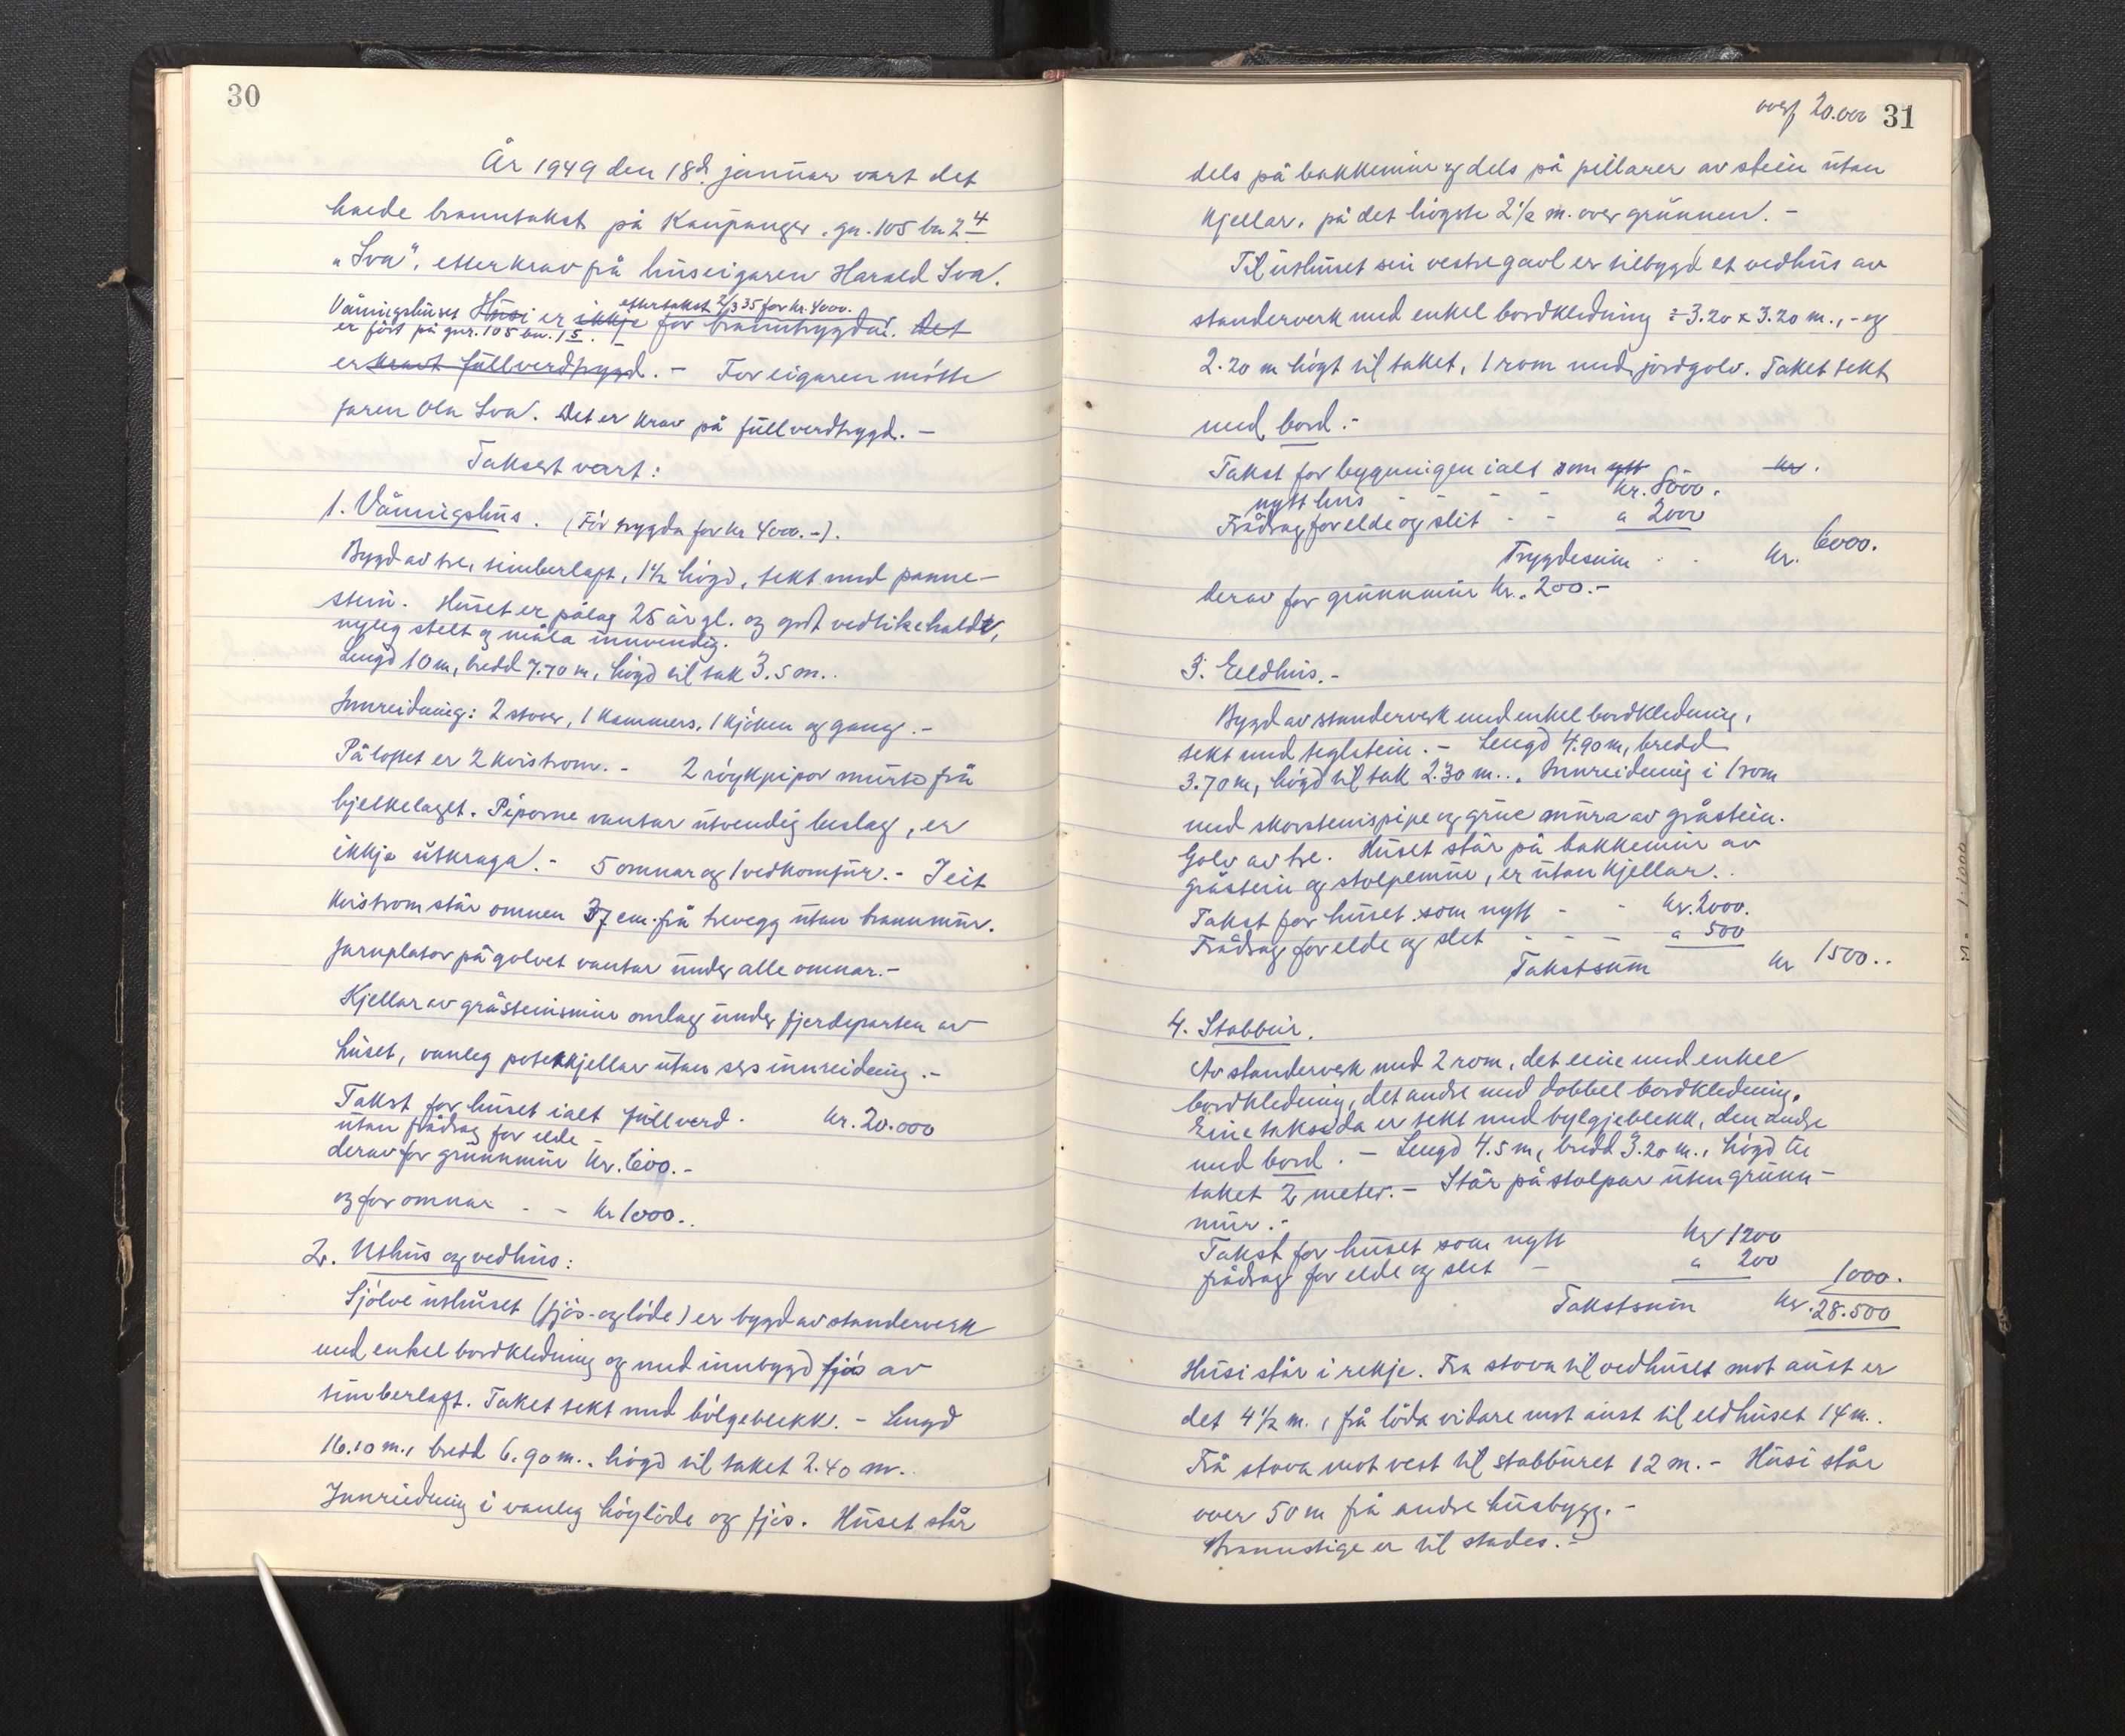 30
År 1949 den 18d. januar vart det
halde branntakst på Kaupanger, gn. 105 bn 24
"Lva", etter krav frå huseigaren Harald Lva.
Våningshuset Husi er ikkje ettertakst 2/3 35 for kr. 4000.
er ført på gnr. 105 bn. 15. før branntrygda. Det
er kravt fullverdtrygd. - For eigaren møtte
faren Ola Lva. Det er krav på fullverdtrygd. -
Taksert vart:
1. Våningshus. (Før trygda for kr 4000.-).
Bygd av tre, timberlaft, 1½ høgd, tekt med panne-
stein. Huset er pålag 25 år gl. og godt vedlikehalde,
nyleg stelt og måla innvendig.
Lengd 10 m, bredd 7.70 m, høgd til tak 3.5 m..
Innreidning: 2 stover, 1 kammers, 1 kjøken og gang. -
På loftet er 2 kvistrom. - 2 røykpipor murte frå
bjelkelaget. Piporne vantar utvendig beslag, er
ikkje utkraga. - 5 omnar og 1 vedkomfur. - I eit
kvistrom står omnen 37 cm. frå trevegg utan brannmur.
Jarnplator på golvet vantar under alle omnar. -
Kjellar av gråsteinsmur omlag under fjerdeparten av
huset, vanleg potetkjellar utan sers innreidning. -
Takst for huset ialt fullverd. kr. 20.000
utan frådrag for elde -
derav for grunnmur kr. 600. -
og for omnar - - kr 1000..
2. Uthus og vedhus:
Sjølve uthuset (fjøs- og løde) er bygd av standerverk
med enkel bordkledning og med innbygd fjøs av
timberlaft. Taket tekt med bølgeblekk. - Lengd
16.10 m., bredd 6.90 m., høgd til taket 2.40 m..
Innreidning i vanleg høyløde og fjøs. Huset står
overf 20.000 31
dels på bakkemur og dels på pillarer av stein utan
kjellar, på det høgste 2½ m. over grunnen. -
Til uthuset sin vestre gavl er tilbygd et vedhus av
standerverk med enkel bordkledning : 3.20 x 3.20 m., - og
2.20 m høgt til taket, 1 rom med jordgolv. Taket tekt
med bord. -
Takst for bygningen ialt som nytt kr.
nytt hus - - - - kr. 8000.
Frådrag for elde og slit - - " 2000
Trygdesum . . kr. 6000.
derav for grunnmur kr. 200. -
3. Eldhus. -
Bygd av standerverk med enkel bordkledning,
tekt med teglstein. - Lengd 4.90 m, bredd
3.70 m, høgd til tak 2.30 m... Innreidning i 1 rom
med skorsteinspipe og grue mura av gråstein.
Golv av tre. Huset står på bakkemur av
gråstein og stolpemur, er utan kjellar..
Takst for huset som nytt - - kr. 2000.
Frådrag for elde og slet - - - " 500
Takstsum kr 1500..
4. Stabbur.
Av standerverk med 2 rom, det eine med enkel
bordkledning, det andre med dobbel bordkledning.
Eine taksida er tekt med bylgjeblekk, den andre
med bord. - Lengd 4.5 m, bredd 3.20 m., høgd til
taket 2 meter. - Står på stolpar uten grunn-
mur. -
Takst for huset som nytt kr 1200
frådrag for elde og slet - " 200 1000.
Takstsum kr. 28.500
Husi står i rekje. Fra stova til vedhuset mot aust er
det 4½ m., frå løda vidare mot aust til eldhuset 14 m..
Frå stova mot vest til stabburet 12 m. - Husi står
over 50 m frå andre husbygg. -
Brannstige er til stades. -